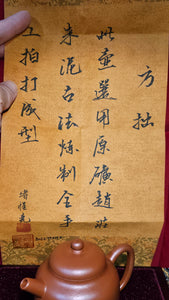 方拙
此壶選用原礦趙莊
朱泥古法煉制全手
工拍打成型